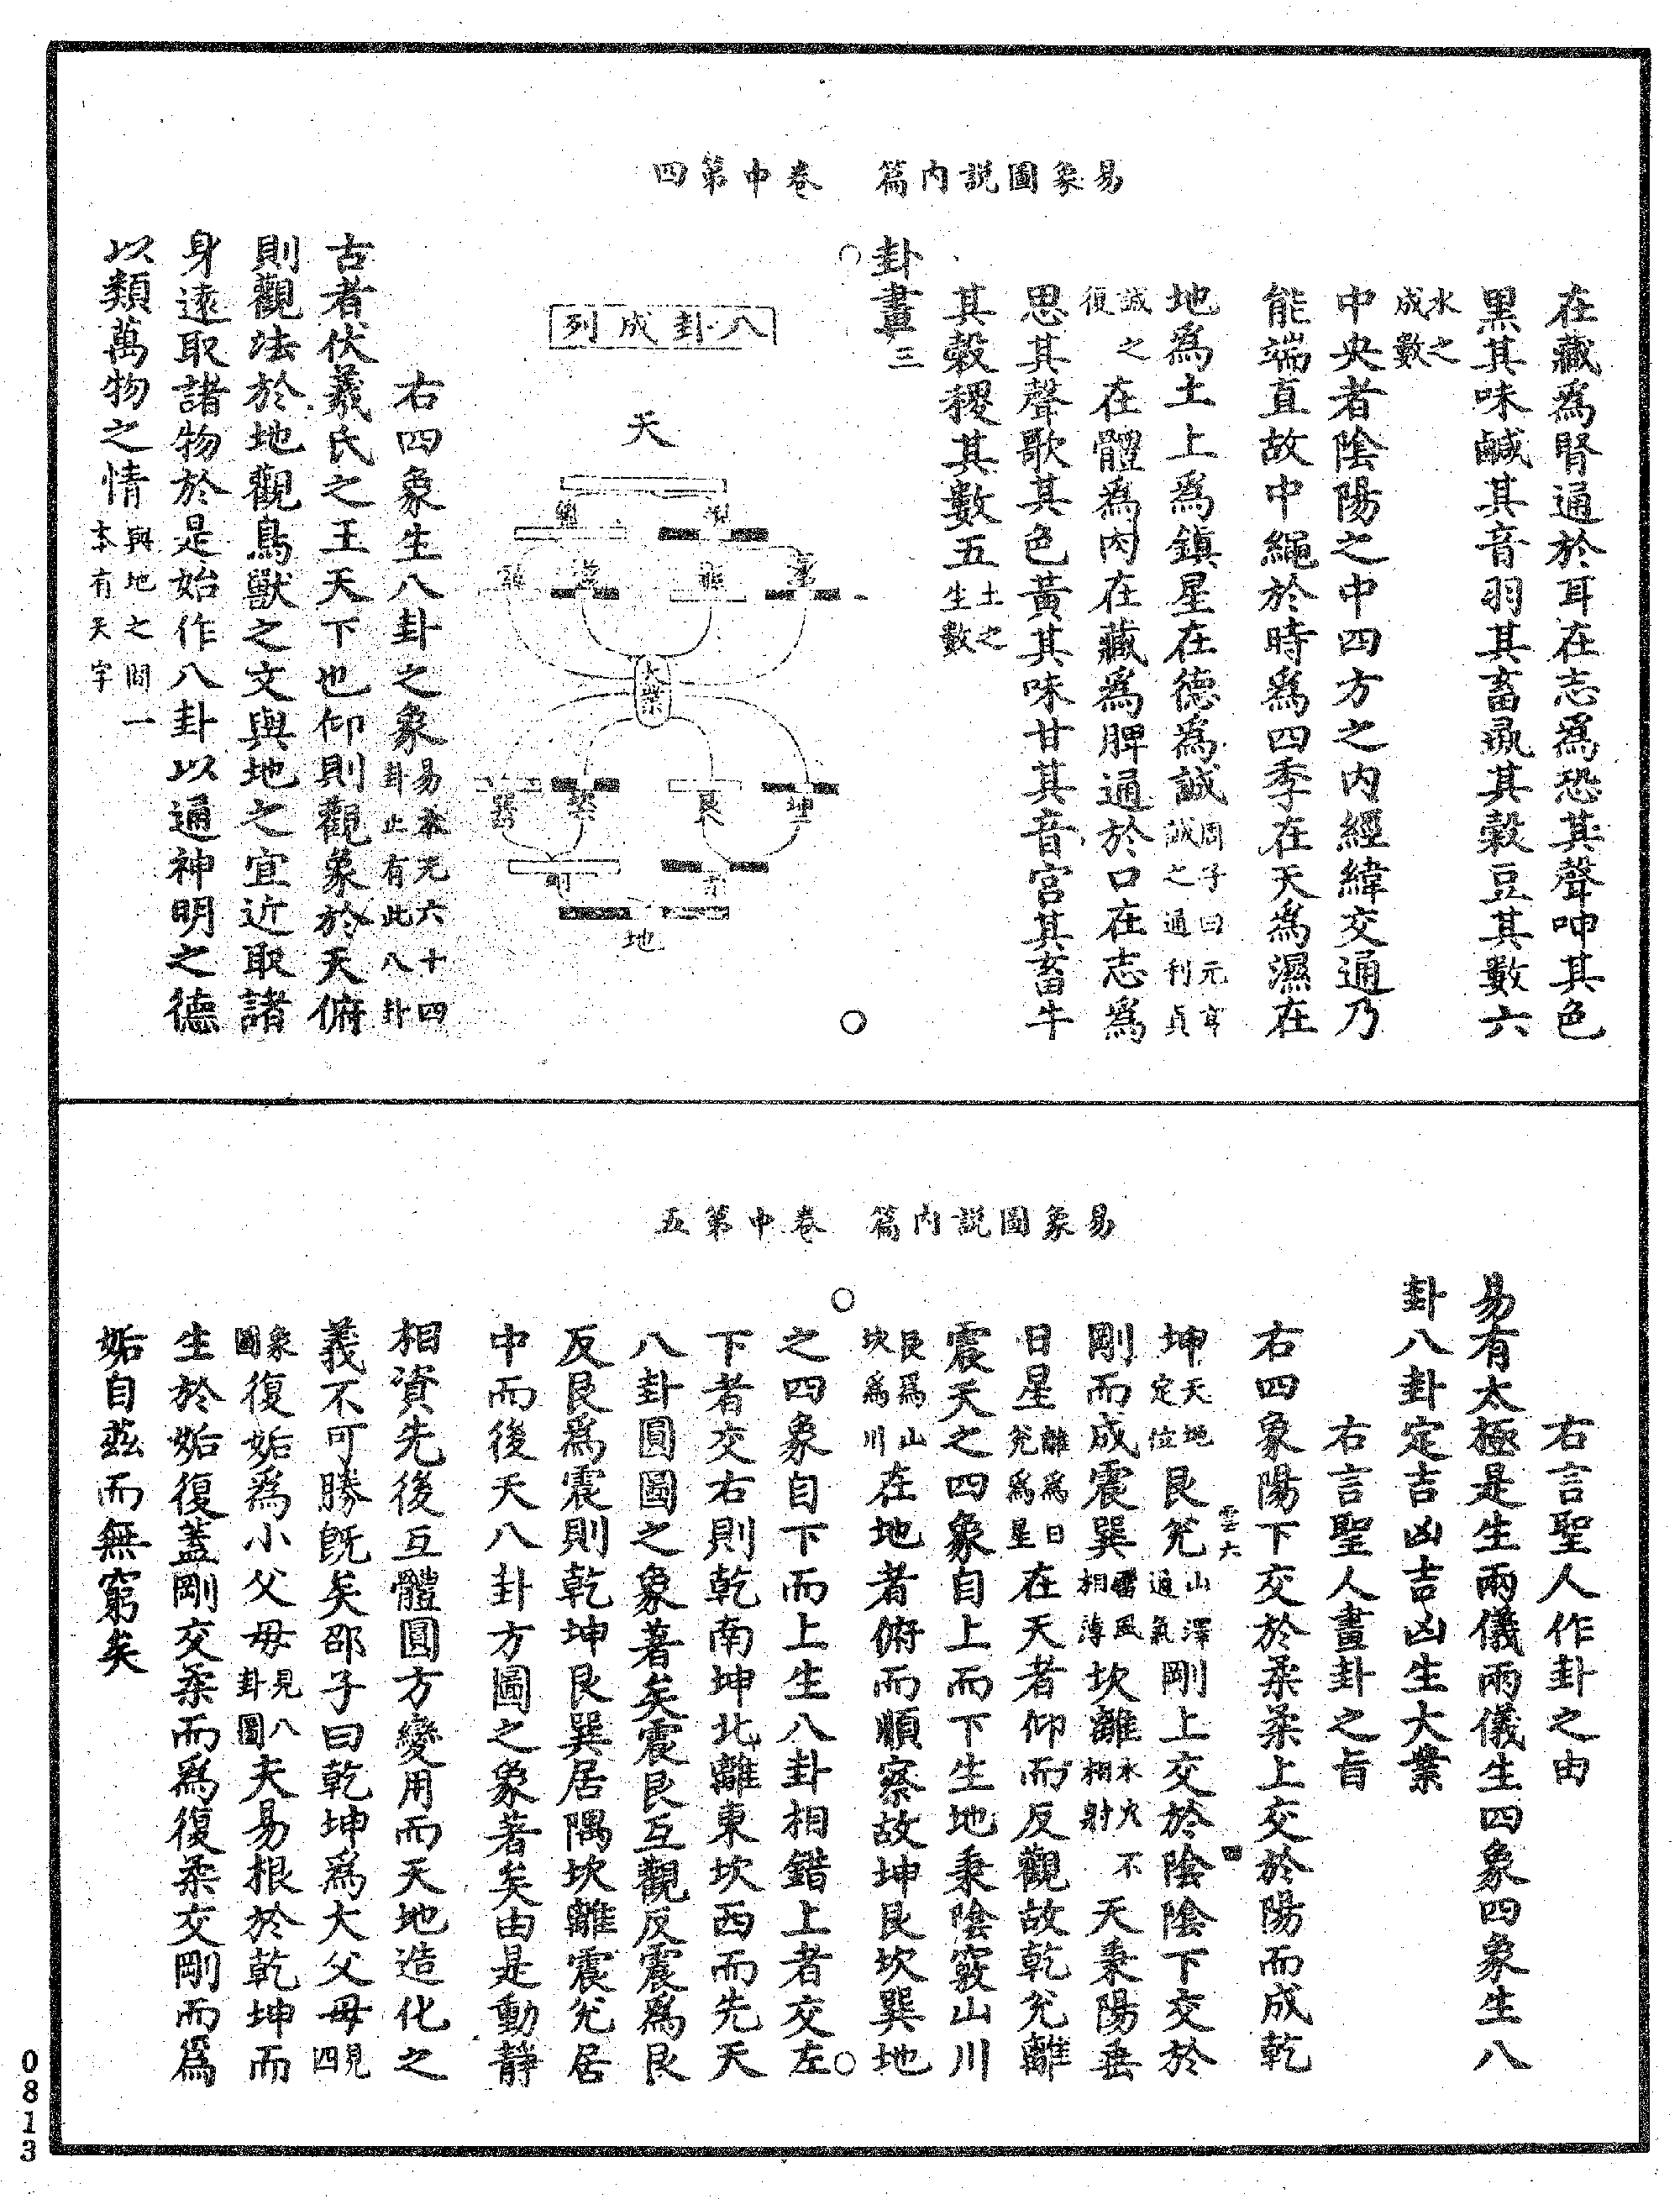 易象圖說內篇　卷中第四
在藏爲腎通於耳在志爲恐其聲呻其色
黑其味鹹其音羽其畜彘其穀豆其數六
水之成數
中央者陰陽之中四方之內經緯交通乃
能端直故中繩於時爲四季在天爲濕在
地爲土上爲鎮星在德爲誠周子曰元亨誠之通利貞
誠之復在體爲肉在藏爲脾通於口在志爲
思其聲歌其色黃其味甘其音宮其畜牛
其穀稷其數五土之生數
卦畫三
八卦成列
天
太極
巽
坎
艮
坤
地
右四象生八卦之象易本无六十四卦止有此八卦
古者伏羲氏之王天下也仰則觀象於天俯
則觀法於地觀鳥獸之文與地之宜近取諸
身遠取諸物於是始作八卦以通神明之德
以類萬物之情與地之間一本有天字
易象圖說內篇　卷中第五
右言聖人作卦之由
易有太極是生兩儀兩儀生四象四象生八
卦八卦定吉凶吉凶生大業
右言聖人畫卦之旨
右四象陽下交於柔柔上交於陽而成乾
坤天地定位艮兌山澤通氣剛上交於陰陰下交於
雲六
四
剛而成震巽雷風相薄坎離水火不相射天秉陽垂
日星離爲日兌爲星在天者仰而反觀故乾兌離
震天之四象自上而下生地秉陰竅山川
艮爲山坎爲川在地者俯而順察故坤艮坎巽地
之四象自下而上生八卦相錯上者交左
下者交右則乾南坤北離東坎西而先天
八卦圓圖之象著矣震艮互觀反震爲艮
反艮爲震則乾坤艮巽居隅坎離震兌居
中而後天八卦方圖之象著矣由是動靜
相資先後互體圓方變用而天地造化之
義不可勝既矣邵子曰乾坤爲大父母見四
象圖復姤爲小父母見八卦圖夫易根於乾坤而
生於姤復蓋剛交柔而爲復柔交剛而爲
姤自茲而無窮矣
0813